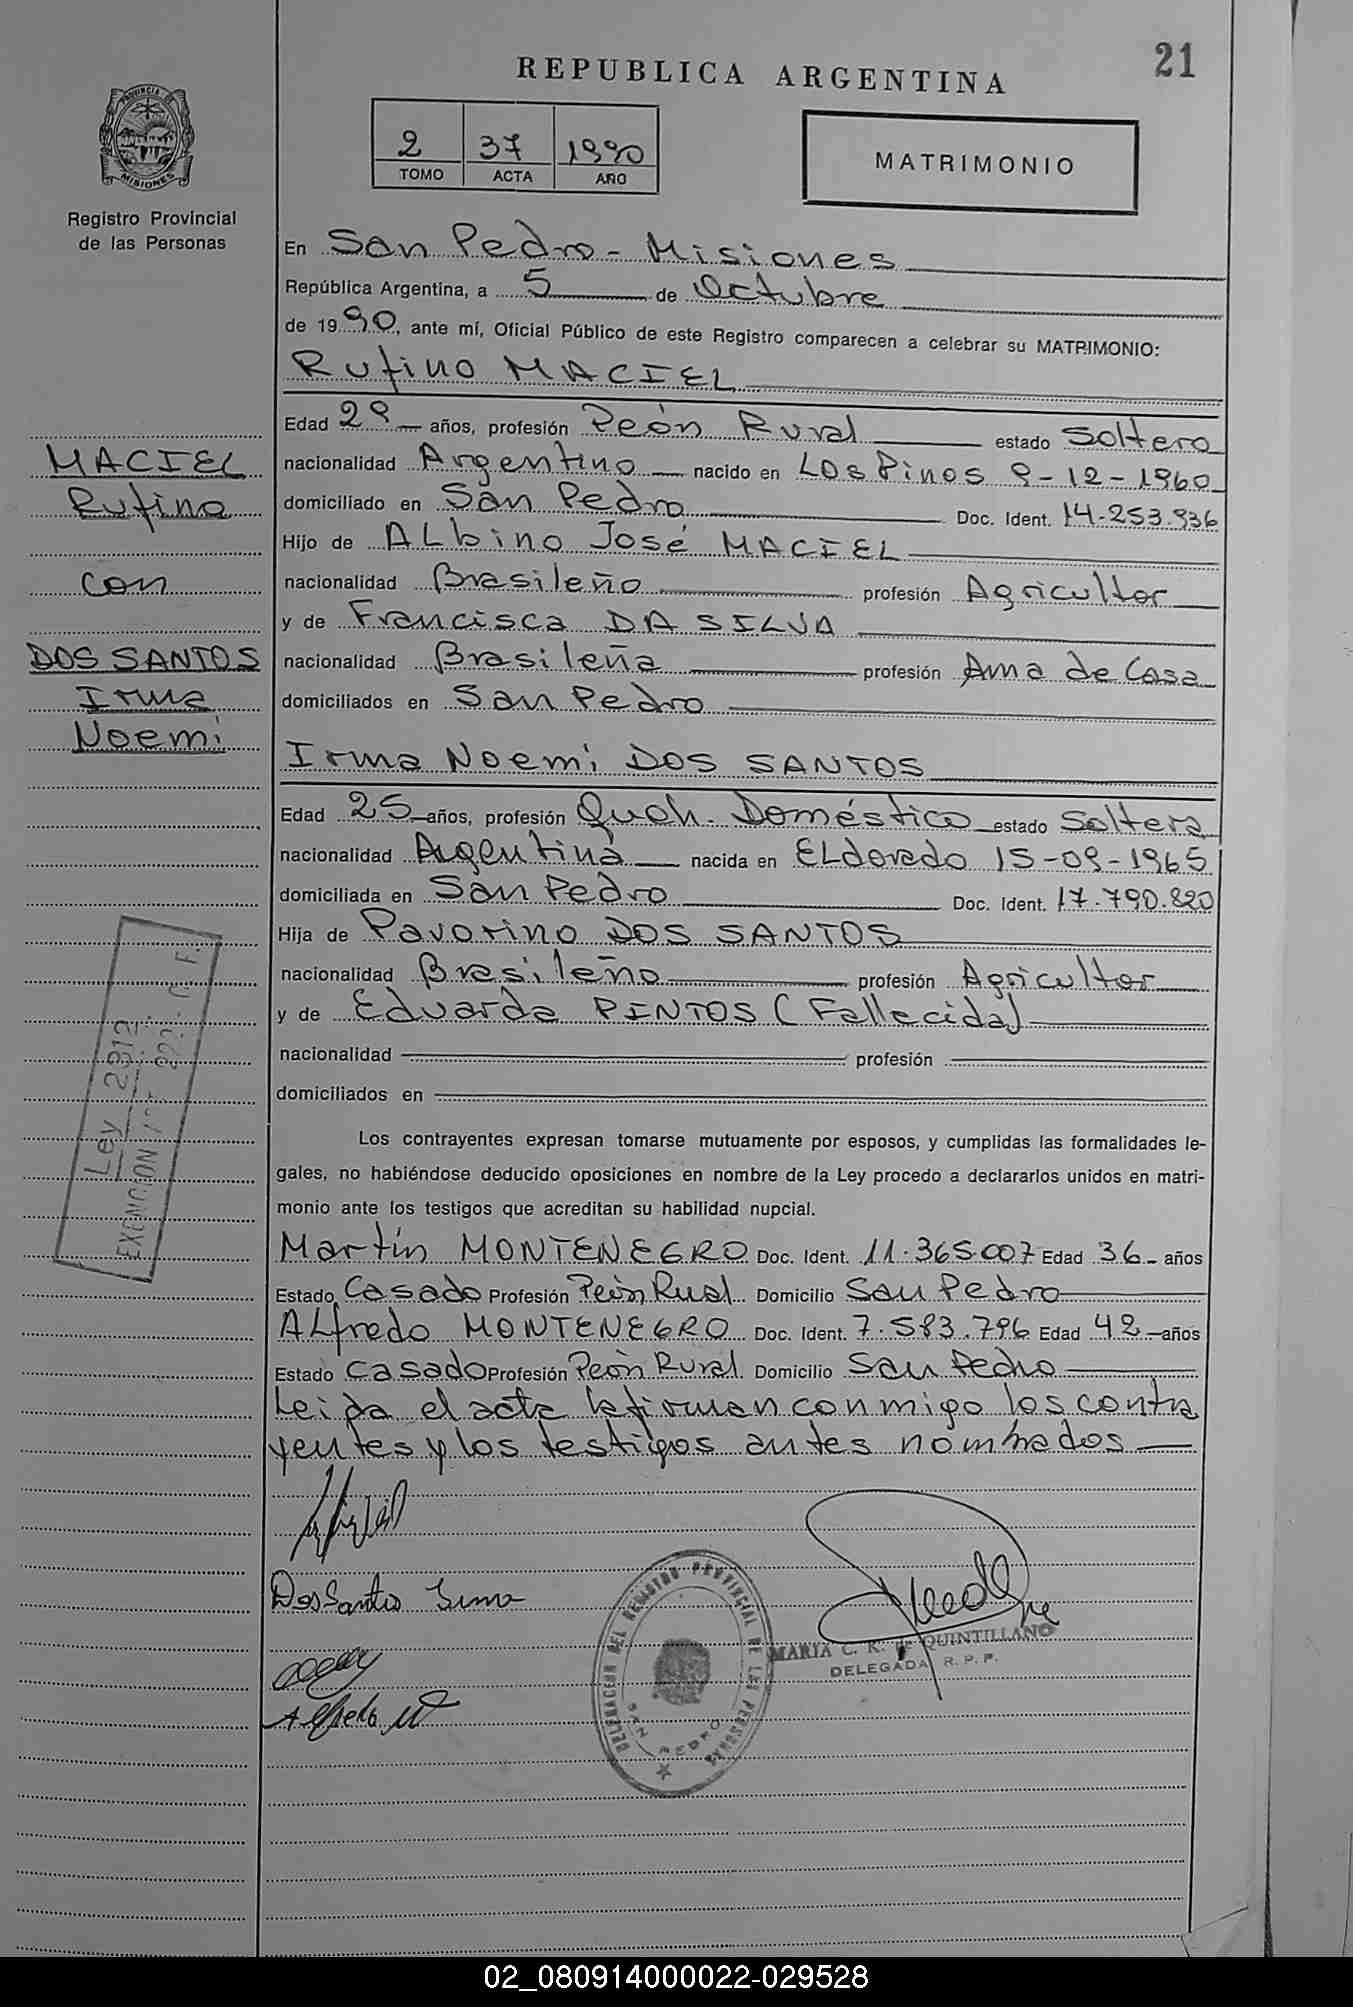 21
REPUBLICA ARGENTINA
PROVINCIA DE
MISIONES
Registro Provincial
de las Personas
2 37 1990
TOMO ACTA AÑO
MATRIMONIO
En San Pedro - Misiones
República Argentina, a 5 de Octubre
de 1990, ante mí, Oficial Público de este Registro comparecen a celebrar su MATRIMONIO:
Rufino MACIEL
Edad 29 años, profesión Peón Rural estado Soltero
nacionalidad Argentino nacido en LOS Pinos 9-12-1960
domiciliado en San Pedro Doc. Ident. 14.253.936
Hijo de ALbino José MACIEL
nacionalidad Brasileño profesión Agricultor
y de Francisca DA SILVA
nacionalidad Brasileña profesión Ama de Casa
domiciliados en San Pedro
MACIEL
Rufino
con
DOS SANTOS
Irma
Noemi
Irma Noemi DOS SANTOS
Edad 25 años, profesión Queh. Doméstico estado Soltera
nacionalidad Argentina nacida en ELdorado 15-09-1965
domiciliada en San Pedro Doc. Ident. 17.790.820
Hija de Pavorino DOS SANTOS
nacionalidad Brasileño profesión Agricultor
y de Eduarda PINTOS (Fallecida)
nacionalidad profesión
domiciliados en
Ley 2312
Los contrayentes expresan tomarse mutuamente por esposos, y cumplidas las formalidades le-
gales, no habiéndose deducido oposiciones en nombre de la Ley procedo a declararlos unidos en matri-
monio ante los testigos que acreditan su habilidad nupcial.
Martín MONTENEGRO Doc. Ident. 11.365.007 Edad 36 años
Estado Casado Profesión Peón Rual Domicilio San Pedro
ALfredo MONTENEGRO Doc. Ident. 7.583.796 Edad 42 años
Estado casado Profesión Peón Rural Domicilio San Pedro
Leida el acta la firman conmigo los contra
yentes y los testigos antes nombrados
Dos Santos Irma
Alfredo M
DELEGACION DEL REGISTRO PROVINCIAL DE LAS PERSONAS
SAN PEDRO
MARIA C. K. de QUINTILLANO
DELEGADA R. P. P.
02_080914000022-029528